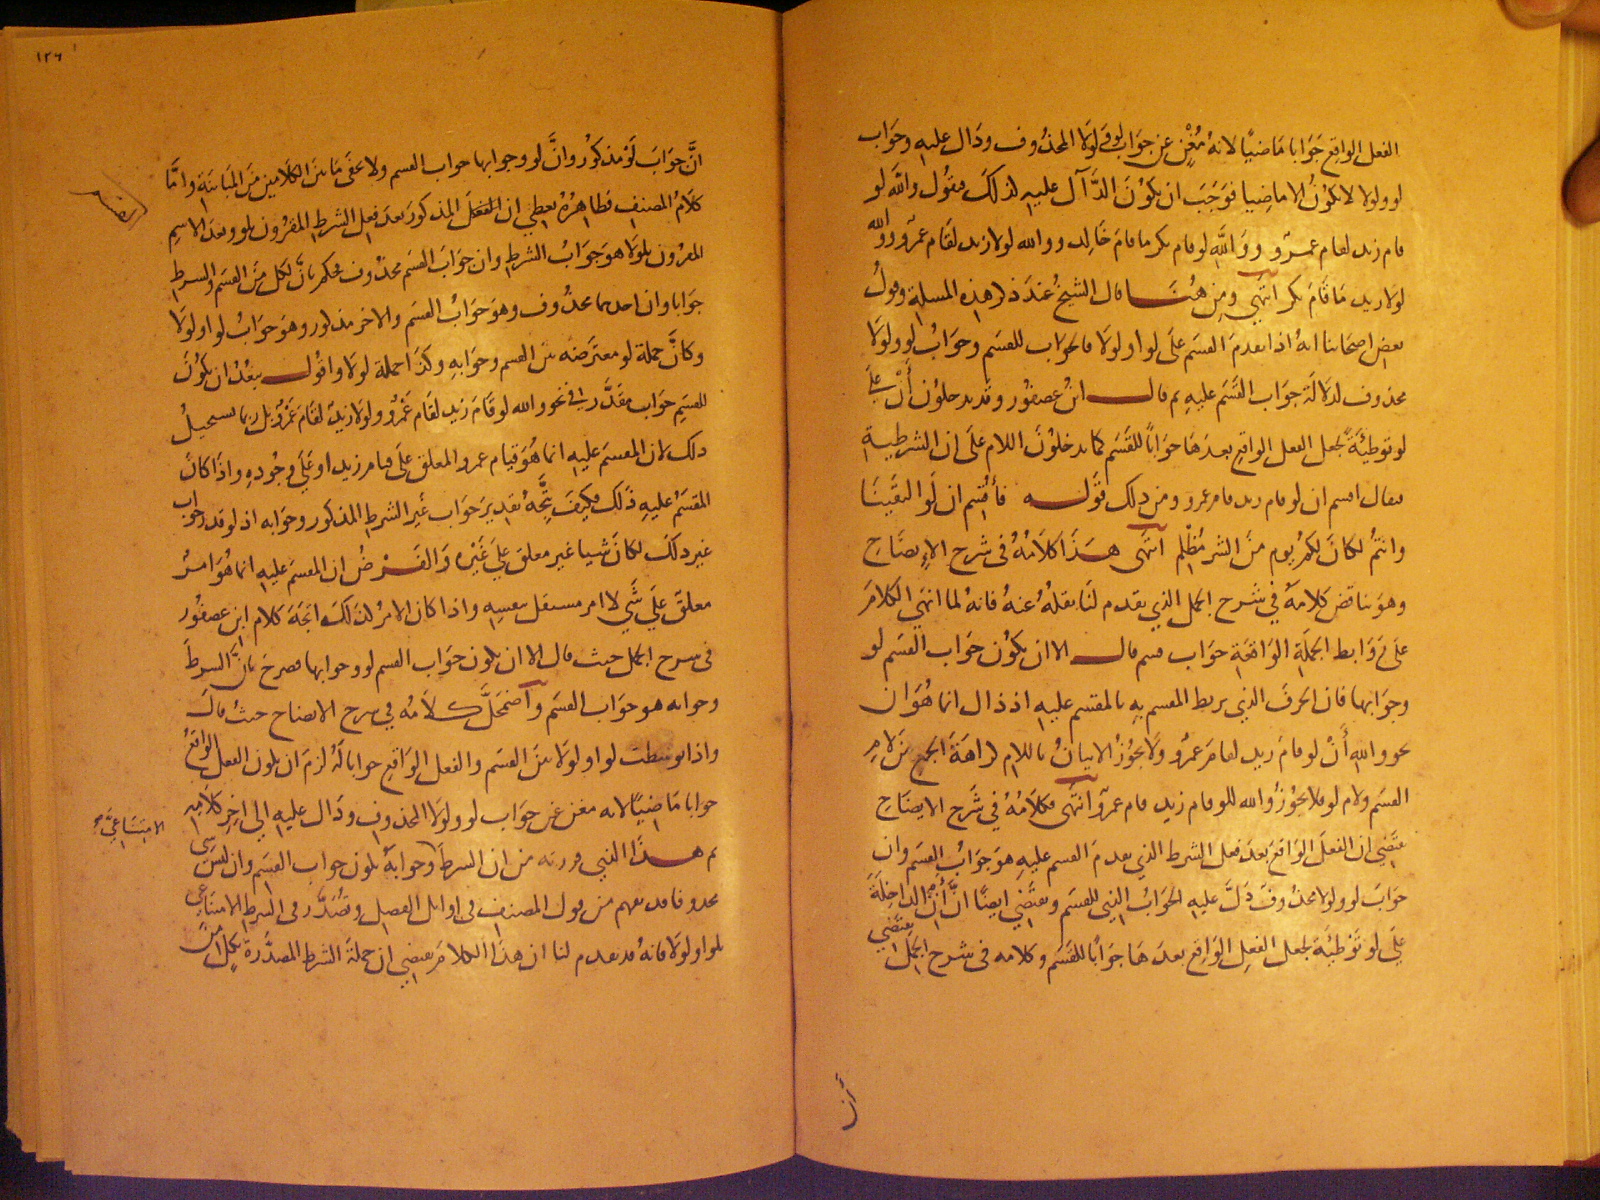 الفعل الواقع جوابا ماضيا لانه مغن عن جواب لو في لولا المحذوف ودال عليه وجواب
لو ولولا لا يكون الا ماضيا فوجب ان يكون الدال عليه لذلك فنقول والله لو
قام زيد لقام عمرو ووالله لو قام بكر ما قام خالد ووالله لولا زيد لقام عمرو ووالله
لولا زيد ما قام بكر انتهى ومن هنا قال الشيخ عند ذكر هذه المسلة وقول
بعض اصحابنا انه اذا تقدم القسم على لو او لولا فالجواب للقسم وجواب لو ولولا
محذوف لدلالة جواب القسم عليه ثم قال ابن عصفور وقد يدخلون أن على
لو توطئة لجعل الفعل الواقع بعدها جوابا للقسم كما يدخلون اللام على ان الشرطية
فيقال اقسم ان لو قام زيد قام عمرو ومن ذلك قوله فأقسم ان لو التقينا
وانتم لكان لكم يوم من الشر مظلم انتهى هذا كلامه في شرح الايضاح
وهو يناقض كلامه في شرح الجمل الذي تقدم لنا نقله عنه فانه لما انهى الكلام
على روابط الجملة الواقعة جواب قسم قال الا ان يكون جواب القسم لو
وجوابها فان الحرف الذي يربط المقسم به بالمقسم عليه اذ ذاك انما هو ان
نحو والله أن لو قام زيد لقام عمرو ولا يجوز الاتيان باللام كراهة الجمع بين لام
القسم ولام لو فلا يجوز والله للو قام زيد قام عمرو انتهى فكلامه في شرح الايضاح
يقتضي ان الفعل الواقع بعد فعل الشرط الذي تقدم القسم عليه هو جواب القسم وان
جواب لو ولولا محذوف دل عليه الجواب الذي للقسم ويقتضي ايضا ان أن الداخلة
على لو توطئة لجعل الفعل الواقع بعدها جوابا للقسم وكلامه في شرح الجمل يقتضي
١٢٦
ان جواب لو مذكور وان لو وجوابها جواب القسم ولا خفى ما بين الكلامين من المباينة واما
كلام المصنف فظاهره يعطي ان الفعل المذكور بعد فعل الشرط المقرون بلو وبعد الاسم
المقرون بلولا هو جواب الشرط وان جواب القسم محذوف فحكم بان لكل من القسم والشرط
جوابا وان احدهما محذوف وهو جواب القسم والاخر مذكور وهو جواب لو او لولا
وكان جملة لو معترضة بين القسم وجوابه وكذا جملة لولا واقول يبعد ان يكون
للقسم جواب مقدر في نحو والله لو قام زيد لقام عمرو ولولا زيد لقام عمرو بل ربما يستحيل
ذلك لان المقسم عليه انما هو قيام عمرو المعلق على قيام زيد او على وجوده واذا كان
المقسم عليه ذلك فكيف يتجه تقدير جواب غير الشرط المذكور وجوابه اذ لو قدر جواب
غير ذلك لكان شيا غير معلق على غيره والفرض ان المقسم عليه انما هو امر
معلق على شي لا امر مستقل بنفسه واذا كان الامر لذلك اتجه كلام ابن عصفور
في شرح الجمل حيث قال الا ان يكون جواب القسم لو وجوابها فصرح بان الشرط
وجوابه هو جواب القسم واضمحل كلامه في شرح الايضاح حيث قال
واذا توسطت لو او لولا بين القسم والفعل الواقع جوابا له لزم ان يكون الفعل الواقع
جوابا ماضيا لانه مغن عن جواب لو ولولا المحذوف ودال عليه الى اخر كلامه
ثم هذا الذي قررته من ان الشرط وجوابه يكون جواب القسم وان ليس شي
محذوفا قد يفهم من قول المصنف في اوائل الفصل وتصدر في الشرط الامتناعي
بلو او لولا فانه قد تقدم لنا ان هذا الكلام يقتضي ان جملة الشرط المصدرة بكل من
الامتناعي